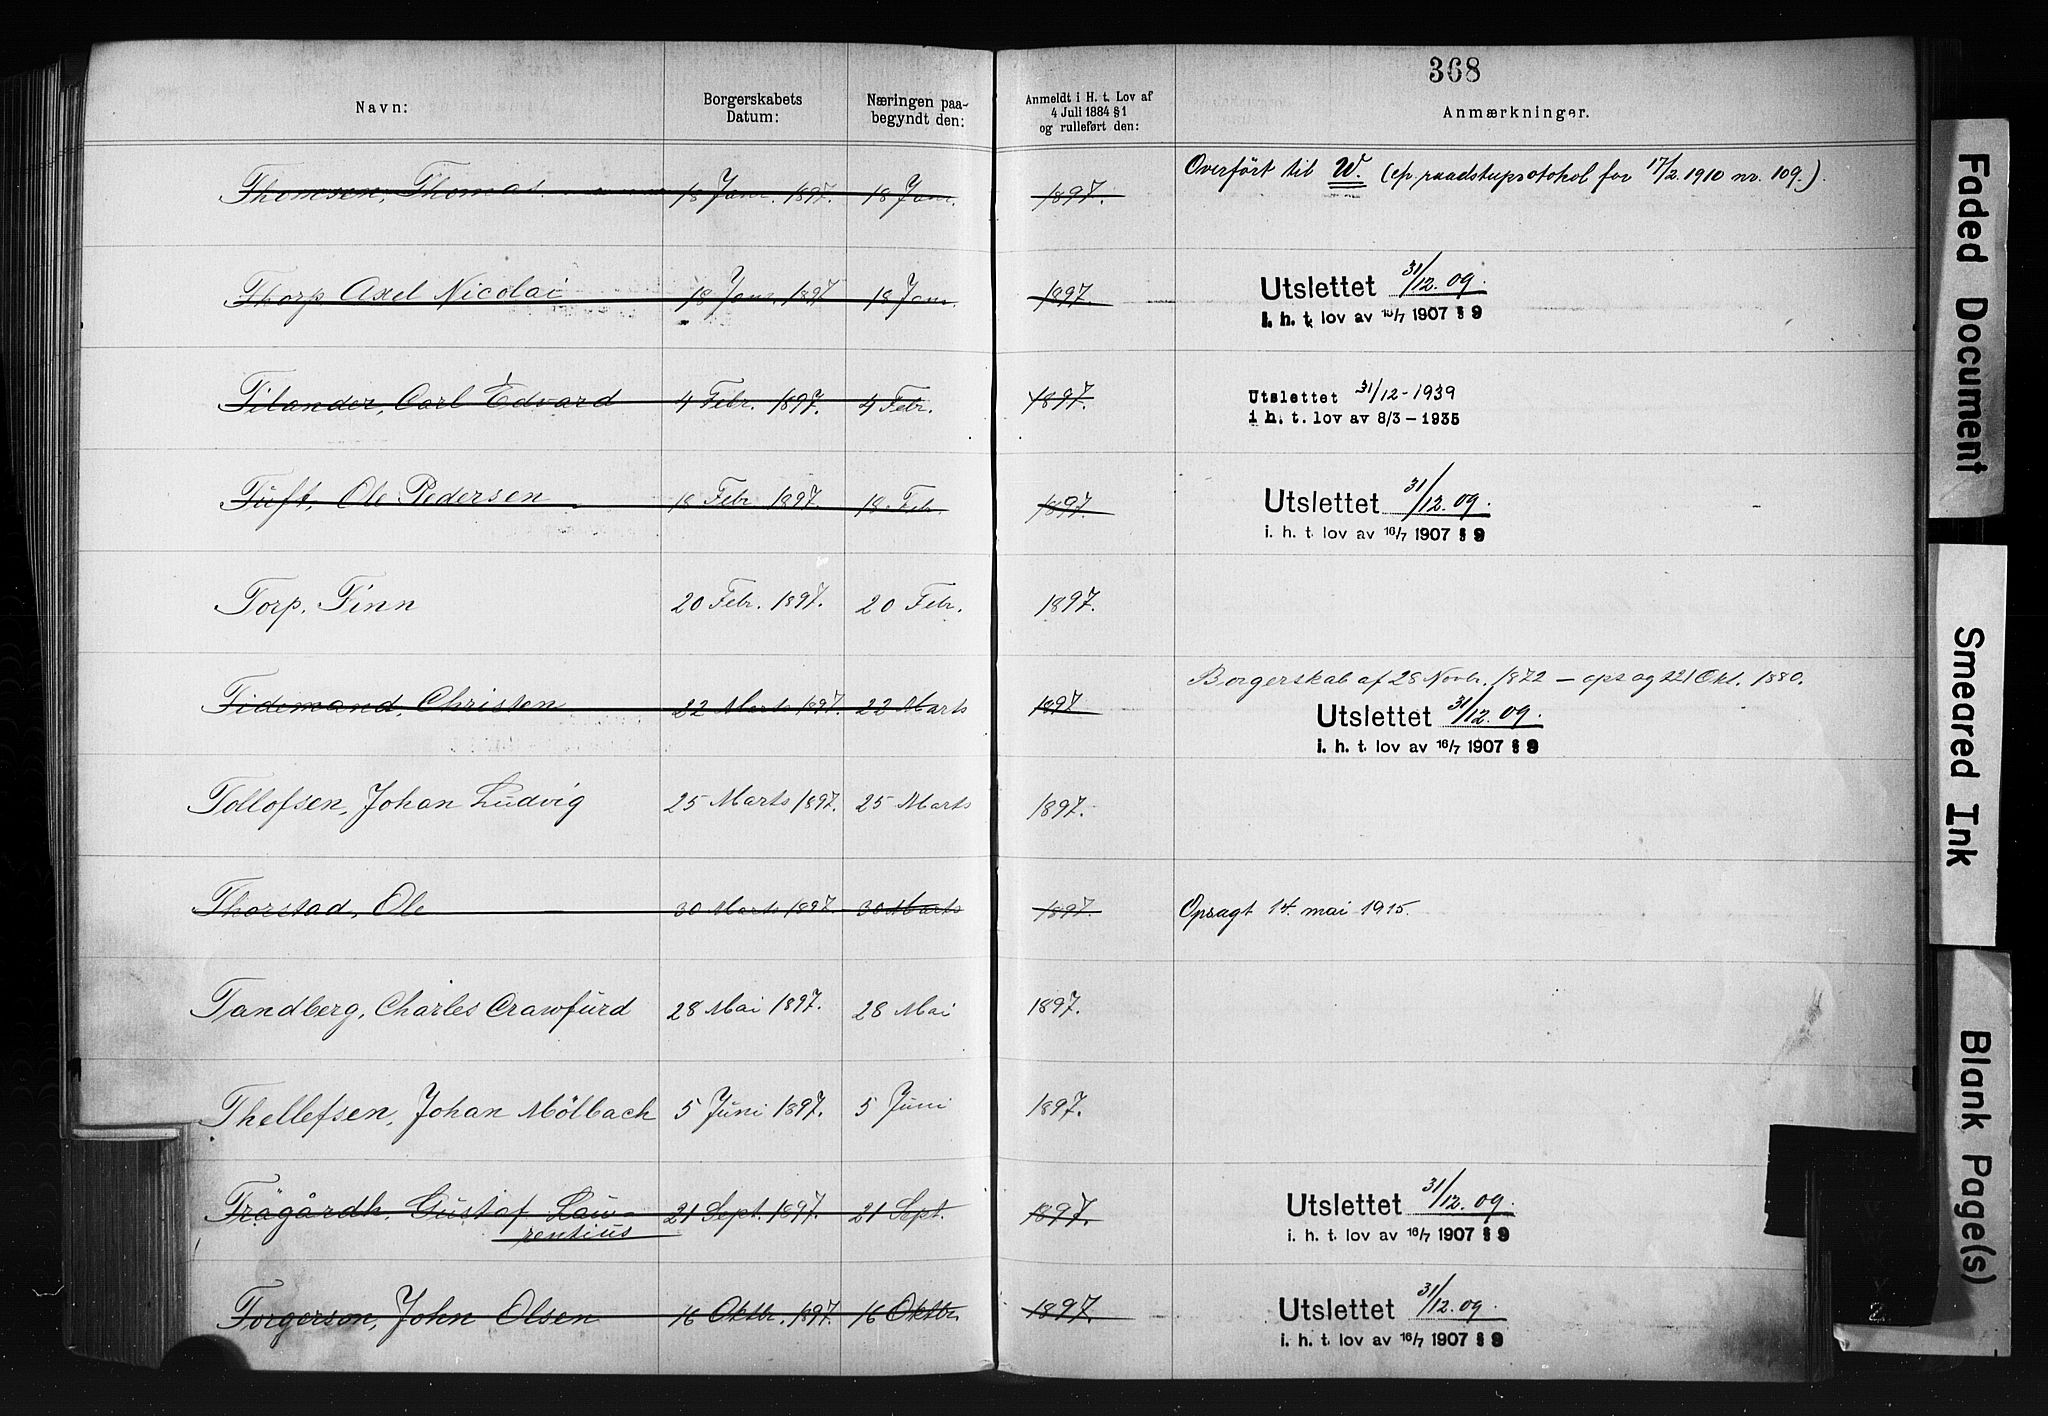 368
Navn: Borgerskabets Datum: Næringen paa-begyndt den: Anmeldt i H. t. Lov af 4 Juli 1884 §1 og rulleført den: Anmærkninger.
Thomsen, Thomas 18 Janr. 1897. 18 Janr. 1897. Overført til W. (cfr. raadstuprotokol for 17/2 1910 nr. 109.)
Thorp Axel Nicolai 18 Janr. 1897 18 Janr. 1897. Utslettet 31/12. 09.
i. h. t. lov av 16/7 1907 § 9
Tilander, Carl Edvard 4 Febr. 1897. 4 Febr. 1897. Utslettet 31/12-1939
i h. t. lov av 8/3-1935
Tuft, Ole Pedersen 18 Febr 1897. 18 Febr. 1897. Utslettet 31/12. 09.
i. h. t. lov av 16/7 1907 § 9
Torp, Finn 20 Febr. 1897. 20 Febr. 1897.
Borgerskab af 28 Novbr. 1872 – opsagt 21 Okt. 1880.
Tidemand, Christen 22 Marts 1897. 22 Marts 1897 Utslettet 31/12. 09.
i. h. t. lov av 16/7 1907 § 9
Tollofsen, Johan Ludvig 25 Marts 1897. 25 Marts 1897.
Thorstad, Ole 30 Marts 1897. 30 Marts 1897. Opsagt 14. mai 1915.
Tandberg, Charles Crawfurd 28 Mai 1897. 28 Mai 1897.
Thellefsen, Johan Mölbach 5 Juni 1897. 5 Juni 1897.
Trägårdh, Gustaf Lau- 21 Sept. 1897. 21 Sept. 1897. Utslettet 31/12. 09.
rentius i. h. t. lov av 16/7 1907 § 9
Torgerson, John Olsen 16 Oktbr. 1897. 16 Oktbr. 1897. Utslettet 31/12. 09.
i. h. t. lov av 16/7 1907 § 9
Faded Document
Smeared Ink
Blank Page(s)